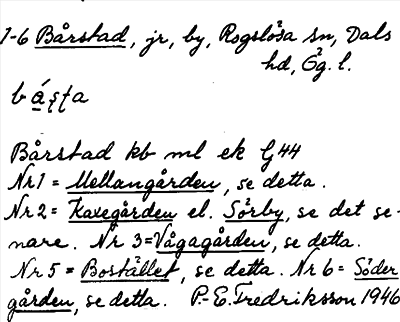 1-6 Bårstad, jr, by, Rogslösa sn, Dals
hd, Ög. l.
Bårstad kb ml ek G44
Nr 1 = Mellangården, se detta.
Nr 2 = Kaxegården el. Sörby, se det se-
nare. Nr 3 = Vågagården, se detta.
Nr 5 = Bostället, se detta. Nr 6 = Söder
gården, se detta. P.-E. Fredriksson 1946